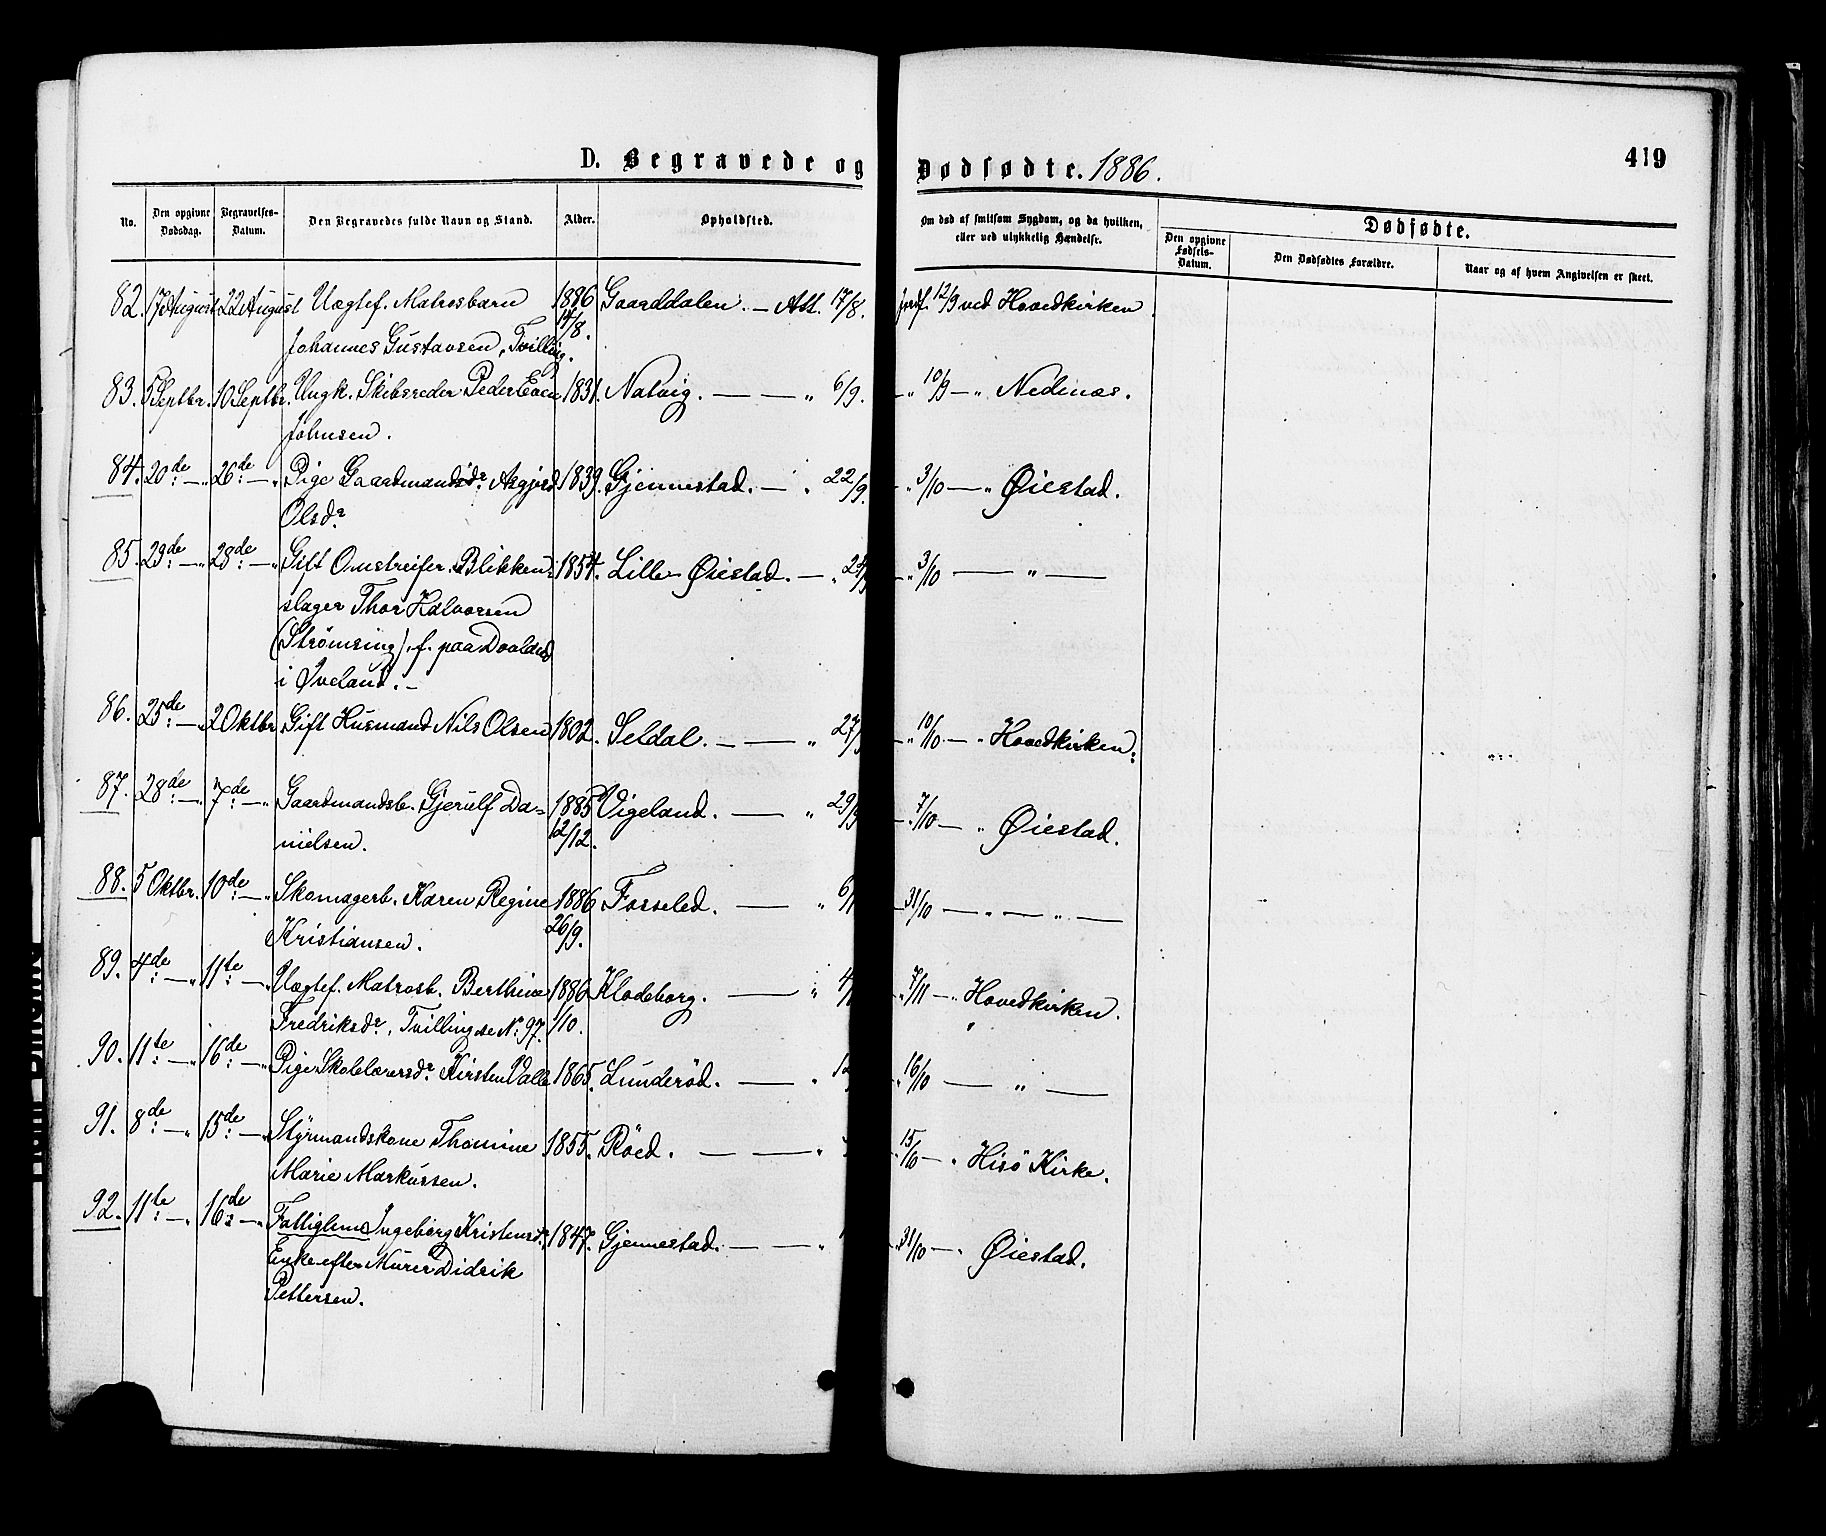 D. Begravede og Dødfødte. 1886.
419
No. Den opgivne Dødsdag. Begravelses-Datum. Den Begravedes fulde Navn og Stand. Alder. Opholdssted. Om død af smitsom Sygdom, og da hvilken, eller ved ulykkelig Hændelse. Dødfødte.
Den opgivne Fødsels-Datum. Den Dødfødtes Forældre. Naar og af hvem Angivelsen er skeet.
82. 17 August 22 August Uægtef. Matrosbarn 1886 Gaarddalen. — Att. 17/8. jordf. 12/9 ved Hovedkirken.
Johannes Gustavsen, Tvilling. 14/8.
83. 5 Septbr. 10 Septbr. Ungk. Skibsreder Peder Even 1831. Natvig. — — " 6/9. — " 10/9 — " Nedenæs.
Johnsen.
84. 20de: — " 26de: — " Pige Gaardmandsdr. Asgjerd 1839. Gjennestad. — " 22/9. — " 3/10 — " Øiestad.
Olsdr.
85. 23de: — " 28de: — " Gift Omstreifer. Blikken- 1854. Lille Øiestad. — " — " 3/10 — " —
slager Thor Halvorsen
(Strømsing), f. paa
i Iveland. —
86. 25de: — " 2 Oktbr. Gift Husmand Nils Olsen 1802. Seldal. — — " 27/9 — " 10/10 — " Hovedkirken.
87. 28de: — " 7de: — " Gaardmandsb. Gjerulf Da- 1885 Vigeland. — " 29/9 — " 7/10 — " Øiestad.
nielsen. 12/12.
88. 5 Oktbr. 10de: — " Skomagerb. Karen Regine 1886 Fosseled. — " 6/1 — 31/10 — " — " —
Kristiansen. 26/9.
89. 4de: — " 11te: — " Uægtef. Matrosb. Berthine 1886 Klodeborg. — " 4/1 — " 7/11 — " Hovedkirken.
Fredriksdr., Tvilling, se No. 97. /10.
90. 11te: — " 16de: — " Pige Skolelærersdr. Kirsten Valle 1865. Lunderød. — " 12 — " 16/10 — " —
91. 8de: — " 15de: — " Styrmandskone Thomine 1855. Røed. — — " — " 15/10 — " Hisø Kirke.
Marie Markussen.
92. 11te: — " 16de: — " Fattiglem Ingeborg Kristensdr. 1847. Gjennestad. — — " — " 31/10 — " Øiestad.
Enke efter Murer Didrik
Pettersen.